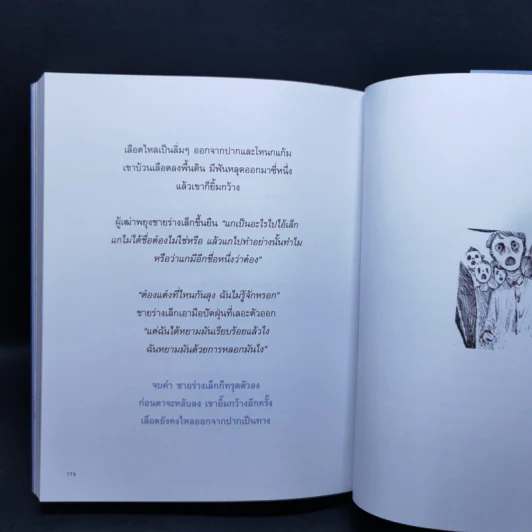 เลือดไหลเป็นลิ่มๆ ออกจากปากและโหนกแก้ม
เขาบ้วนเลือดลงพื้นดิน มีฟันหลุดออกมาซี่หนึ่ง
แล้วเขาก็ยิ้มกว้าง
ผู้เฒ่าพยุงชายร่างเล็กขึ้นยืน "แกเป็นอะไรไปไอ้เล็ก
แกไม่ได้ชื่อต๋องไม่ใช่หรือ แล้วแกไปทำอย่างนั้นทำไม
หรือว่าแกมีอีกชื่อหนึ่งว่าต๋อง"
"ต๋องแต๋งที่ไหนกันลุง ฉันไม่รู้จักหรอก"
ชายร่างเล็กเอามือปัดฝุ่นที่เลอะตัวออก
"แต่ฉันได้หยามมันเรียบร้อยแล้วไง
ฉันหยามมันด้วยการหลอกมันไง"
จบคำ ชายร่างเล็กก็ทรุดตัวลง
ก่อนตาจะหลับลง เขายิ้มกว้างอีกครั้ง
เลือดยังคงไหลออกจากปากเป็นทาง